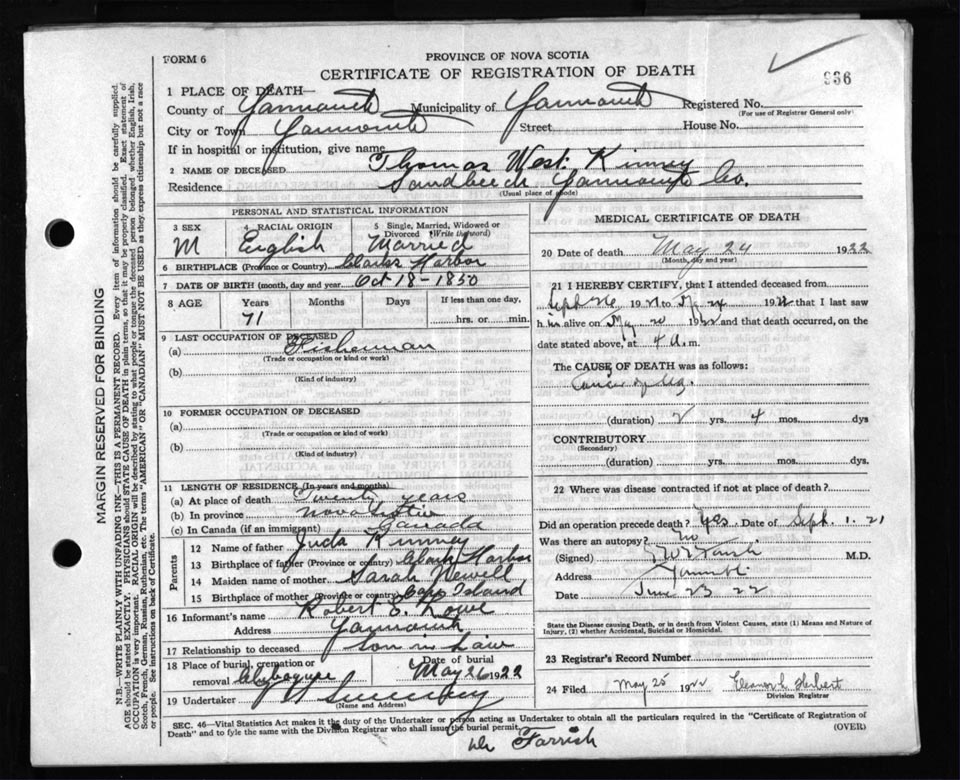 FORM 6
PROVINCE OF NOVA SCOTIA
CERTIFICATE OF REGISTRATION OF DEATH
936
1 PLACE OF DEATH—
County of Yarmouth Municipality of Yarmouth Registered No.
(For use of Registrar General only)
City or Town Yarmouth Street House No.
If in hospital or institution, give name
2 NAME OF DECEASED Thomas West: Kinney
Residence Sandbeech Yarmouth Co.
(Usual place of abode)
PERSONAL AND STATISTICAL INFORMATION
3 SEX 4 RACIAL ORIGIN 5 Single, Married, Widowed or Divorced (Write the word)
M English Married
6 BIRTHPLACE (Province or Country) Clarks Harbor
7 DATE OF BIRTH (month, day and year) Oct 18-1850
8 AGE Years Months Days If less than one day,
71 hrs. or min.
9 LAST OCCUPATION OF DECEASED
(a) Fisherman
(Trade or occupation or kind or work)
(b)
(Kind of industry)
10 FORMER OCCUPATION OF DECEASED
(a)
(Trade or occupation or kind or work)
(b)
(Kind of industry)
11 LENGTH OF RESIDENCE (In years and months)
(a) At place of death Twenty years
(b) In province Nova Scotia
(c) In Canada (if an immigrant) Canada
Parents
12 Name of father Juda Kinney
13 Birthplace of father (Province or country) Clark Harbor
14 Maiden name of mother Sarah Newell
15 Birthplace of mother (Province or country) Cape Island
16 Informant's name Robert E. Rowe
Address Yarmouth
17 Relationship to deceased son in law
18 Place of burial, cremation or removal Date of burial May 26 1922
19 Undertaker Sweeney
(Name and Address)
MEDICAL CERTIFICATE OF DEATH
20 Date of death May 24 1922
(Month, day and year)
21 I HEREBY CERTIFY, that I attended deceased from
Sept 26 1921 to May 24 1922 that I last saw
him alive on May 20 1922 and that death occurred, on
date stated above, at 4 a.m.
The CAUSE OF DEATH was as follows:
Cancer of leg.
(duration) yrs. 4 mos. dys.
CONTRIBUTORY
(Secondary)
(duration) yrs. mos. dys.
22 Where was disease contracted if not at place of death?
Did an operation precede death? Yes Date of Sept. 1. 21
Was there an autopsy? No
(Signed) M.D.
Address Yarmouth
Date June 23 22
State the Disease causing Death, or in death from Violent Causes, state (1) Means and Nature of Injury, (2) whether Accidental, Suicidal or Homicidal.
23 Registrar's Record Number
24 Filed May 25 1922 Eleanor L. Herbert
Division Registrar
SEC. 46—Vital Statistics Act makes it the duty of the Undertaker or person acting as Undertaker to obtain all the particulars required in the "Certificate of Registration of
Death" and to fyle the same with the Division Registrar who shall issue the burial permit. (OVER)
Dr Farrish
MARGIN RESERVED FOR BINDING
N.B.—WRITE PLAINLY WITH UNFADING INK—THIS IS A PERMANENT RECORD. Every item of information should be carefully supplied.
AGE should be stated EXACTLY. PHYSICIANS should STATE CAUSE OF DEATH in plain terms, so that it may be properly classified. Exact statement of
OCCUPATION is very important. RACIAL ORIGIN will be described by stating to what people or tongue the deceased person belonged whether English, Irish,
Scotch, French, German, Russian, Ruthenian, etc. The terms "AMERICAN" OR "CANADIAN" MUST NOT BE USED as they express citizenship but not a race
or people. See instructions on back of Certificate.